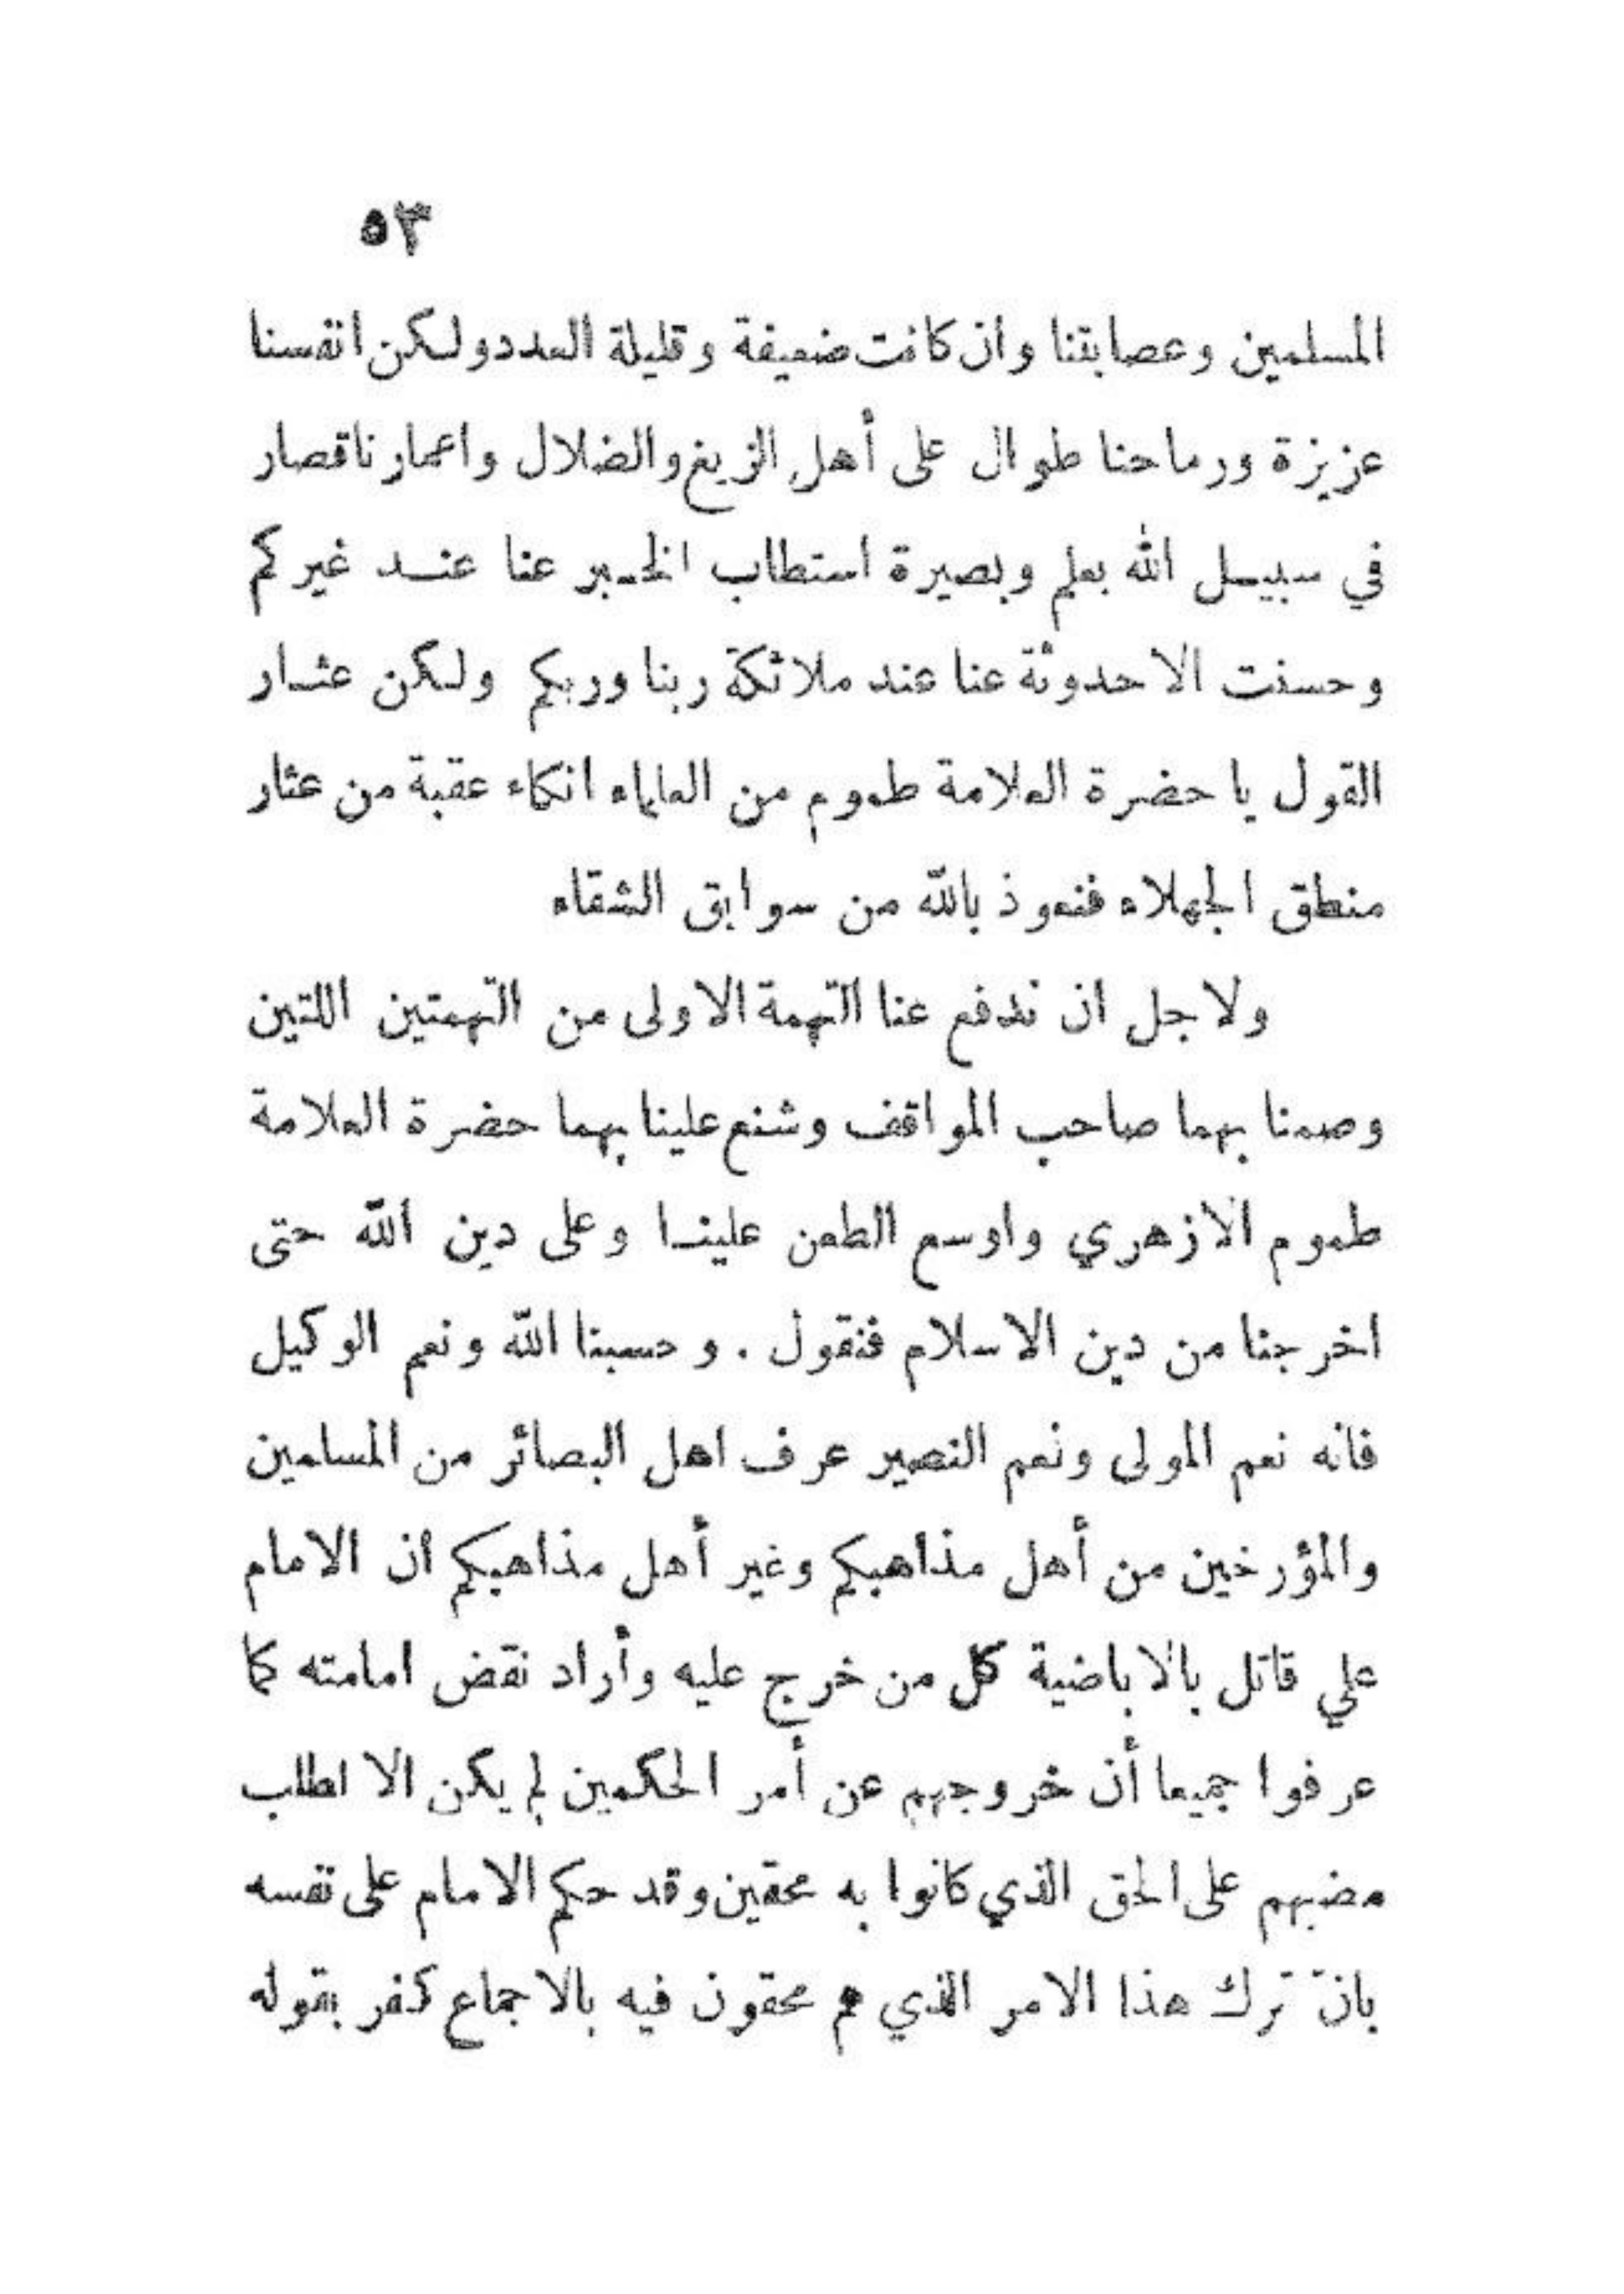 ٥٣
المسلمين وعصابقنا وان كانت ضعيفة وقليلة العدد ولكن انفسنا
عزيزة ورماحنا طوال على أهل الزيغ والضلال واعمارنا قصار
في سبيل الله بعلم وبصيرة استطاب الخبر عنا عند غيركم
وحسنت الاحدوثة عنا عند ملائكة ربنا وربكم ولكن عثار
القول يا حضرة العلامة طموم من العلماء انكاء عقبة من عثار
منطق الجهلاء فنعوذ بالله من سوابق الشقاء
ولاجل ان ندفع عنا التهمة الاولى من التهمتين اللتين
وصمنا بهما صاحب المواقف وشنع علينا بهما حضرة العلامة
طموم الازهري واوسع الطعن علينا وعلى دين الله حتى
اخرجنا من دين الاسلام فنقول . وحسبنا الله ونعم الوكيل
فانه نعم المولى ونعم النصير عرف اهل البصائر من المسلمين
والمؤرخين من أهل مذاهبكم وغير أهل مذاهبكم ان الامام
علي قاتل بالاباضية كل من خرج عليه وأراد نقض امامته كما
عرفوا جميعا أن خروجهم عن أمر الحكمين لم يكن الا لطلب
مضيهم على الحق الذي كانوا به محقين وقد حكم الامام على نفسه
بانّ ترك هذا الامر الذي هم محقون فيه بالاجماع كفر بقوله